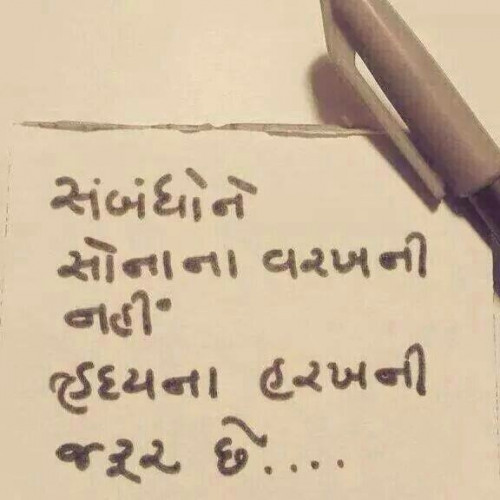 સંબંધોને
સોનાના વરખની
નહીં
હ્રદયના હરખની
જરૂર છે....